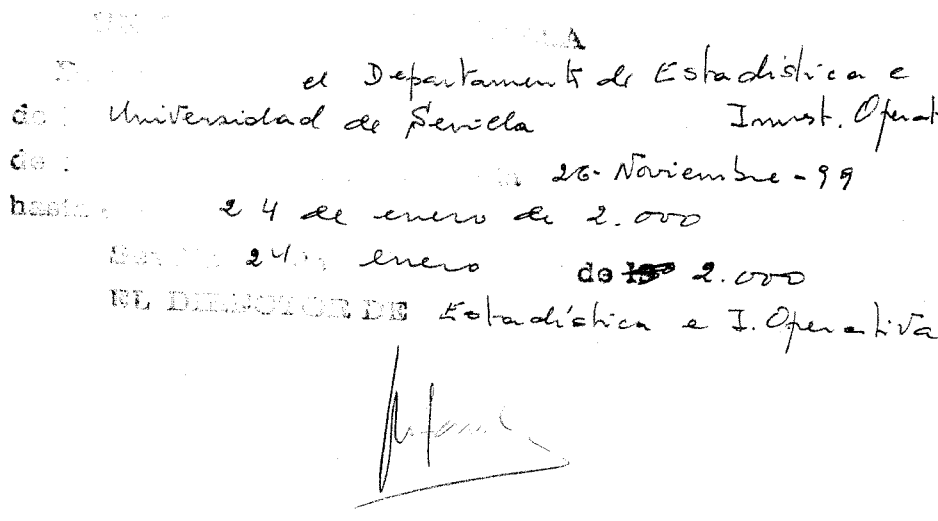 el Departamento de Estadística e
de Universidad de Sevilla Invest. Operat
de 26-Noviembre-99
hasta 24 de enero de 2.000
24 enero de 19 2.000
EL DIRECTOR DE Estadística e I. Operativa